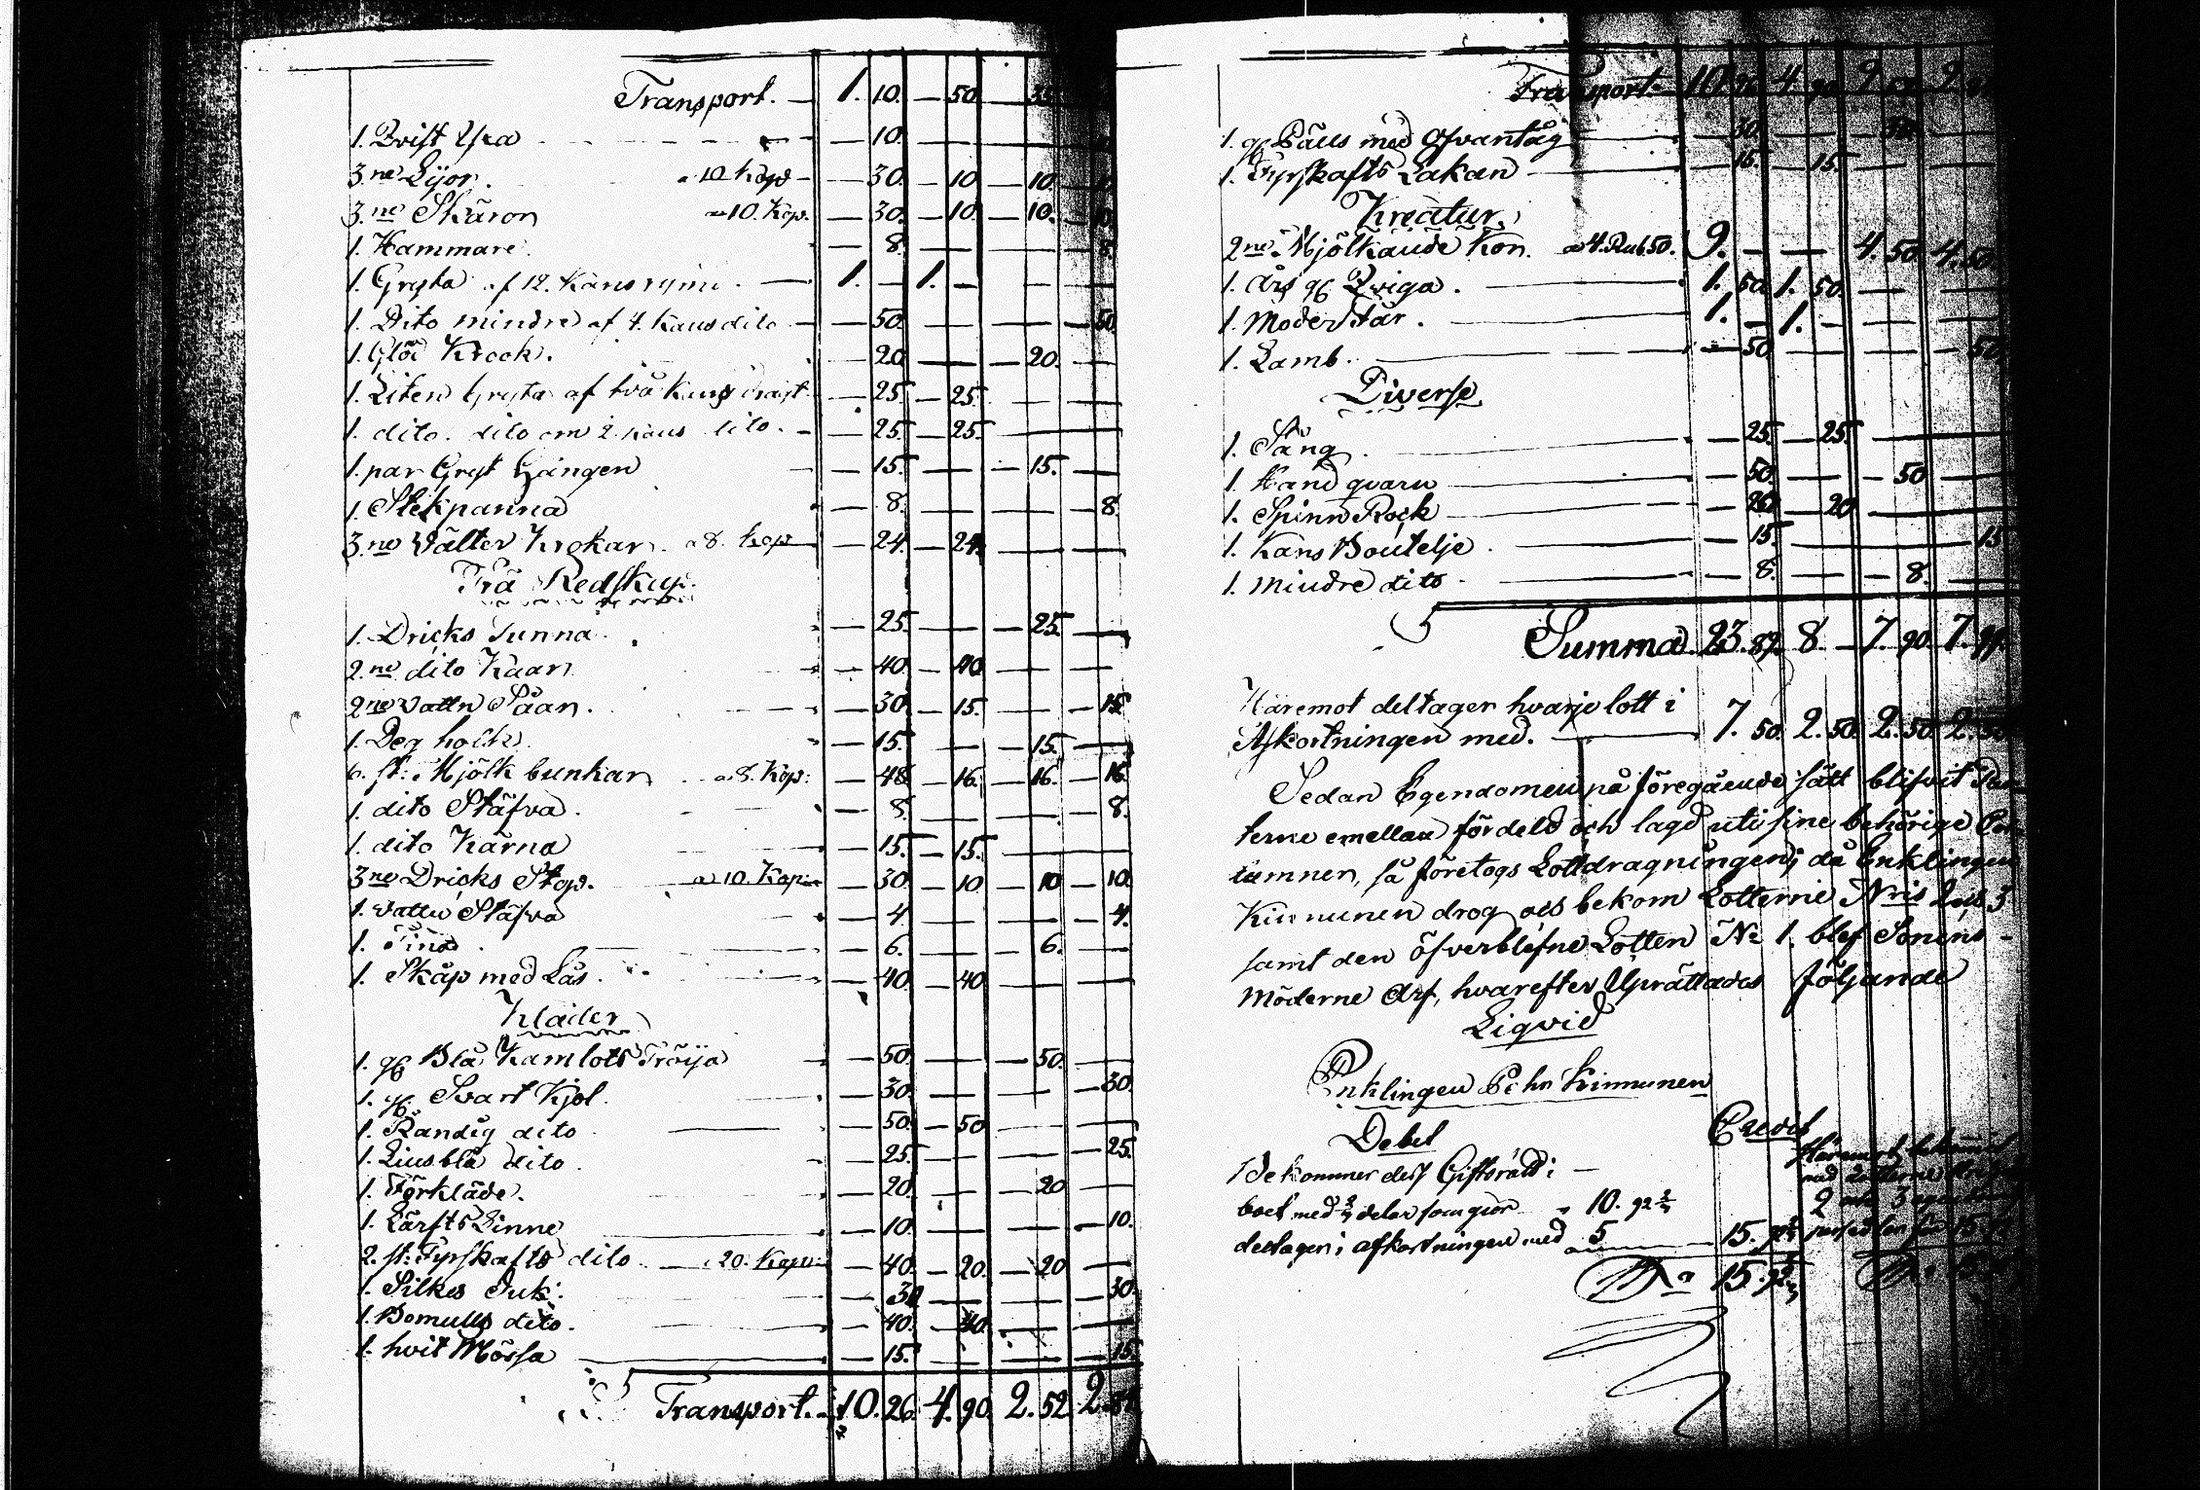 Transport. — 1. 10. — 50. — 35.
1. Qvist Yxa — 10.
3.ne Lijor. a 10 Kop — 30. — 10 — 10. — 10
3.ne Skäror a 10. Kop. — 30. — 10. — 10. — 10
1. Hammare — 8. — — 8.
1. Gryta af 12. Kans rymd. — 1. — 1. —
1. Dito mindre af 4. Kans dito — 50. — — — 50
1. Glöd Krok. — 20 — — 20. —
1. Liten Gryta af två Kans dragt — 25. — 25. — —
1. dito. dito om 2. Kans dito. — 25. — 25. —
1. par Gryt Hängen — 15. — — 15. —
1. Stekpanna — 8. — — — 8.
3.ne Välter Krokar. a 8. Kop — 24. — 24. — —
Trä Redskap.
1. Dricks Tunna. — 25. — — 25. —
2.ne dito Kaar — 40. — 40. — —
2ne Vattn Såar. — 30. — 15. — — 15.
1. Deg holk. — 15. — — 15. —
6. st: Mjölk bunkar a 8. Kop: — 48. — 16. — 16. — 16.
1. dito Stäfva. — 8. — — — 8.
1. dito Kärna — 15. — 15. —
3ne Dricks Stop. a 10. Kop: — 30. — 10 — 10 — 10.
1. Vattn Stäfva — 4. — — — 4.
1. Tina. — 6. — — 6. —
1. Skåp med Lås. — 40. — 40. — —
Kläder
1. gl Blå Kamlots Tröija — 50. — — 50. —
1. gl. Svart Kjol. — 30. — — — 30.
1. Randig dito — 50. — 50. — —
1. Liusblå dito. — 25. — — — 25.
1. Förkläde. — 20. — — 20 —
1. Lärfts Linne — 10. — — — 10.
2. st: Fyrskafts dito a 20. Kop: — 40. — 20. — 20 —
1. Silkes Duk: — 30 — — — 30.
1. Bomulls dito. — 40. — 40. — —
1. hvit Mössa — 15. — — — 15.
Transport. 10. 26. 4. 90. 2. 52. 2.
Transport. 10. 26 4. 90 2. 52 2.
1. gl Päls med Ofvantåg — 30. — — 30 —
1. Fyrskafts Lakan — 15. — 15. — —
Kreatur.
2ne Mjölkande Kor. a 4. Rub. 50. 9. — — 4. 50. 4. 50.
1. års gl Qviga. — 1. 50. 1. 50. — —
1. Moder Får. — 1. — 1. — —
1. Lamb. — 50. — — — 50.
Diverse
1. Säng. — 25. — 25. —
1. Hand qvarn — 50. — — 50 —
1. Spinn Rock — 20. — 20 —
1. Kans Boutelje. — 15. — — 15
1. mindre dito. — 8. — — 8. —
Summa 23. 89. 8. — 7. 90. 7. 99.
Häremot deltager hvarje lott i
Afkortningen med. — 7. 50. 2. 50. 2. 50. 2. 50
Sedan Egendomen på föregående sätt blifvit
terne emellan fördeld och lagd uti sine behörige
lumner, så företogs Lottdragningen, då Enklingen
Kinnunen drog och bekom Lotterne Nris 2 och 3
samt den öfverblefne Lotten No 1. blef Sonens
Möderne Arf, hvarefter Upprättades följande
Liqvid
Enklingen Pehr Kinnunen
Debet
Credit
Bekommer dess Giftorätt i —
boet med ⅔ delar som giör 10. 92 ⅔
deltager i afkortningen med 5 — 15. 92 ⅔
Sa 15. 92 ⅔